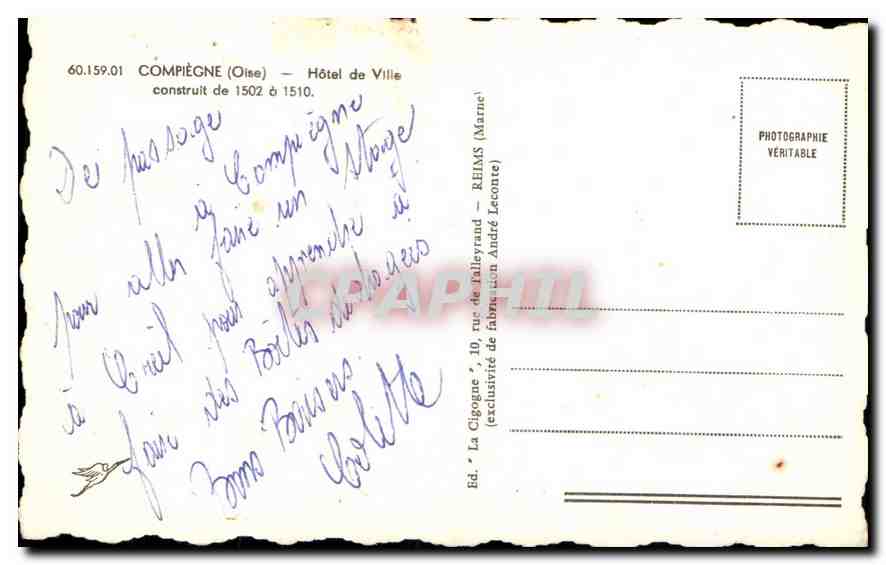 60.159.01 COMPIÈGNE (Oise) — Hôtel de Ville
construit de 1502 à 1510.
De passage
à Compiègne
pour aller faire un stage
à Creil pour apprendre à
faire des Boîtes
Bons Baisers.
Colette
Ed. " La Cigogne ", 10, rue de Talleyrand — REIMS (Marne)
(exclusivité de fabrication André Leconte)
PHOTOGRAPHIE
VÉRITABLE
CPAPHIL